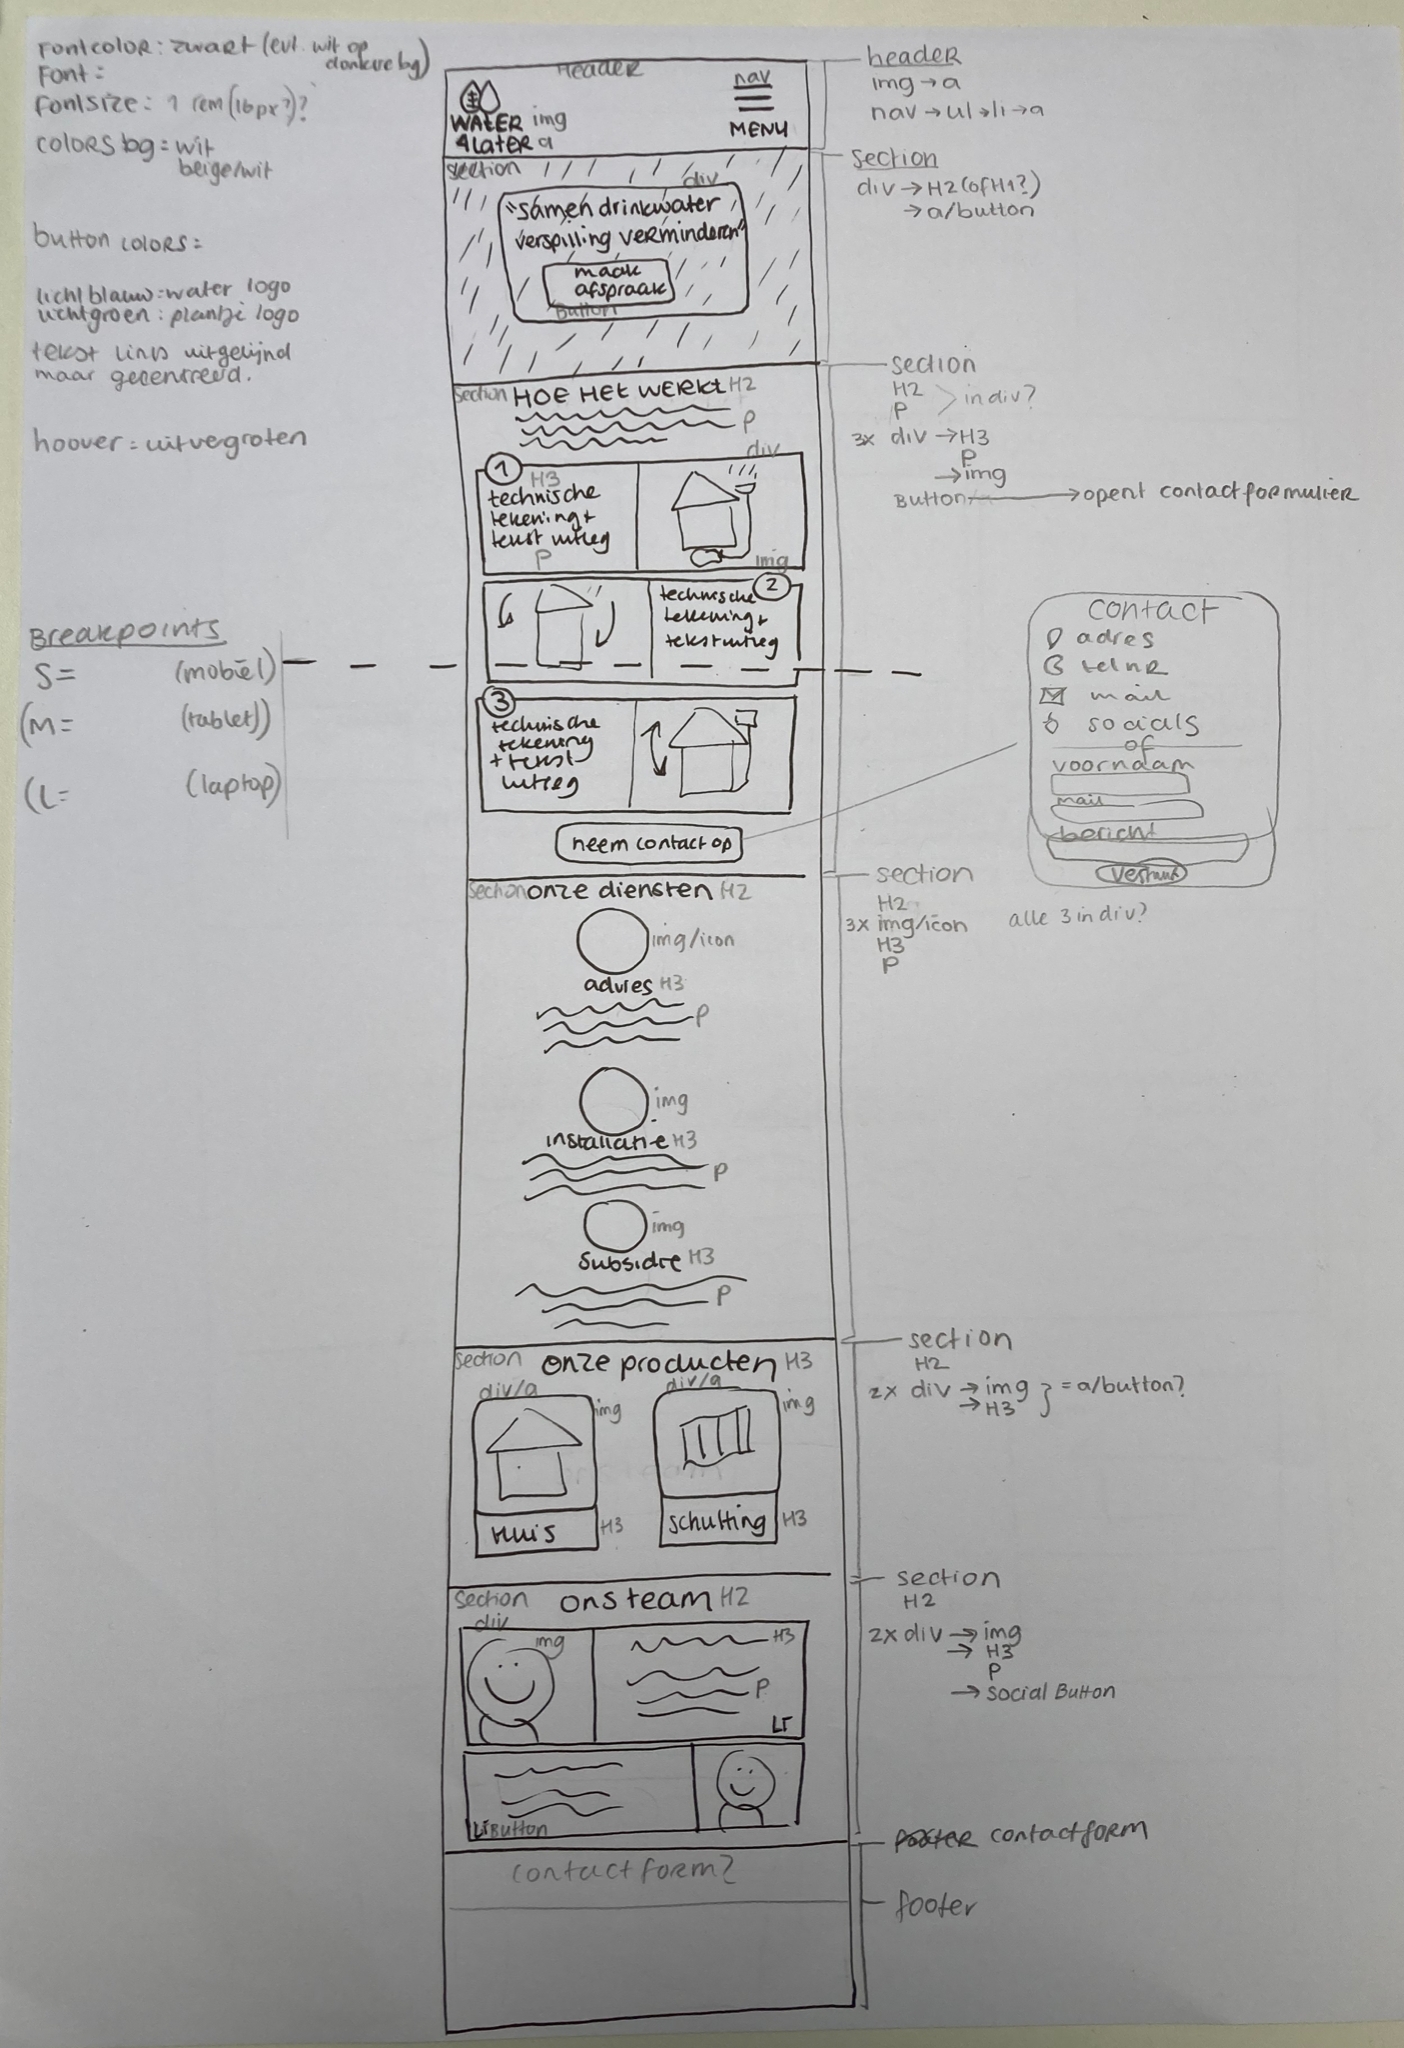 Fontcolor: zwart (evt. wit op
donkere bg)
Font:
Fontsize: 1 rem (16px?)?
colors bg = wit
beige/wit
button colors =
lichtblauw = water logo
lichtgroen : plantje logo
tekst links uitgelijnd
maar gecentreerd.
hoover = uitvergroten
Breakpoints
S= (mobiel)
(M= (tablet))
(L= (laptop)
Header
WATER img
4LATER a
nav
MENU
section
div
"samen drinkwater
verspilling verminderen"
maak
afspraak
Button
Section HOE HET WERKT H2
P
div
1
H3
technische
tekening +
tekst uitleg
P
img
technische 2
tekening +
tekst uitleg
3
technische
tekening
+ tekst
uitleg
neem contact op
Section onze diensten H2
img/icon
advies H3
P
img
installatie H3
P
img
Subsidie H3
P
Section onze producten H3
div/a
div/a
img
img
Huis H3
schutting H3
Section ons team H2
div
img
H3
P
LI
LI Button
contactform?
header
img → a
nav → ul → li → a
section
div → H2 (of H1?)
→ a/button
section
H2
P
in div?
3x div → H3
P
→ img
Button → opent contactformulier
contact
adres
telnr
mail
socials
of
voornaam
mail
bericht
verstuur
section
H2
3x img/icon alle 3 in div?
H3
P
section
H2
2x div → img
→ H3
= a/button?
section
H2
2x div → img
→ H3
P
→ social Button
footer contactform
footer